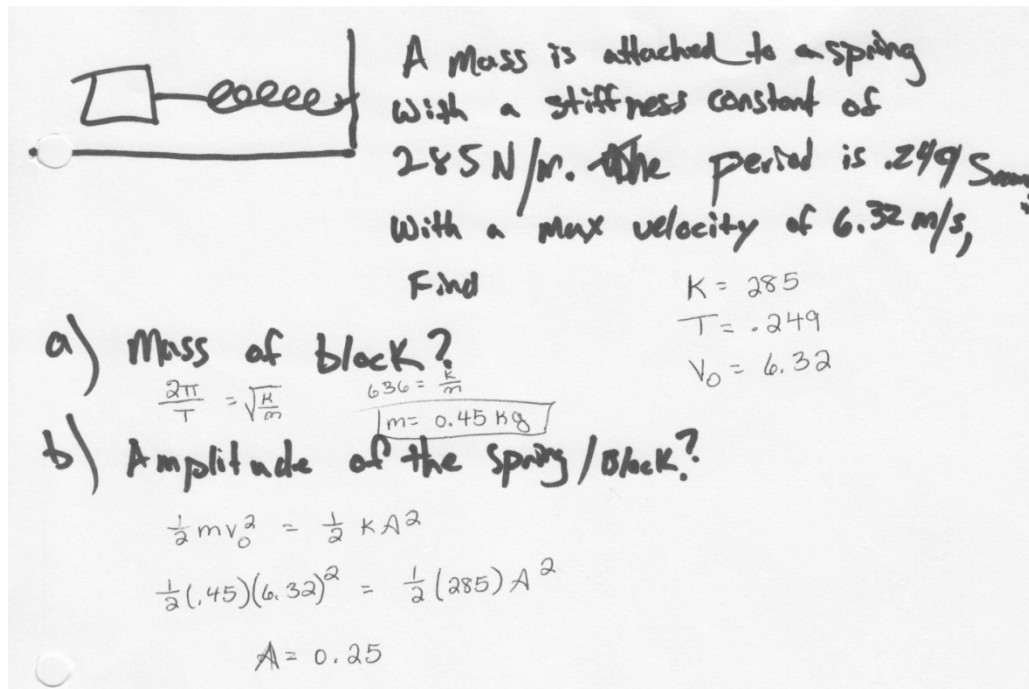 A mass is attached to a spring
with a stiffness constant of
285 N/m. The period is .249 s
with a max velocity of 6.32 m/s,
Find
K = 285
T = .249
V₀ = 6.32
a) Mass of block?
2π/T = √(K/m)
636 = K/m
m = 0.45 kg
b) Amplitude of the spring / Block?
½ mv₀² = ½ KA²
½(.45)(6.32)² = ½(285)A²
A = 0.25